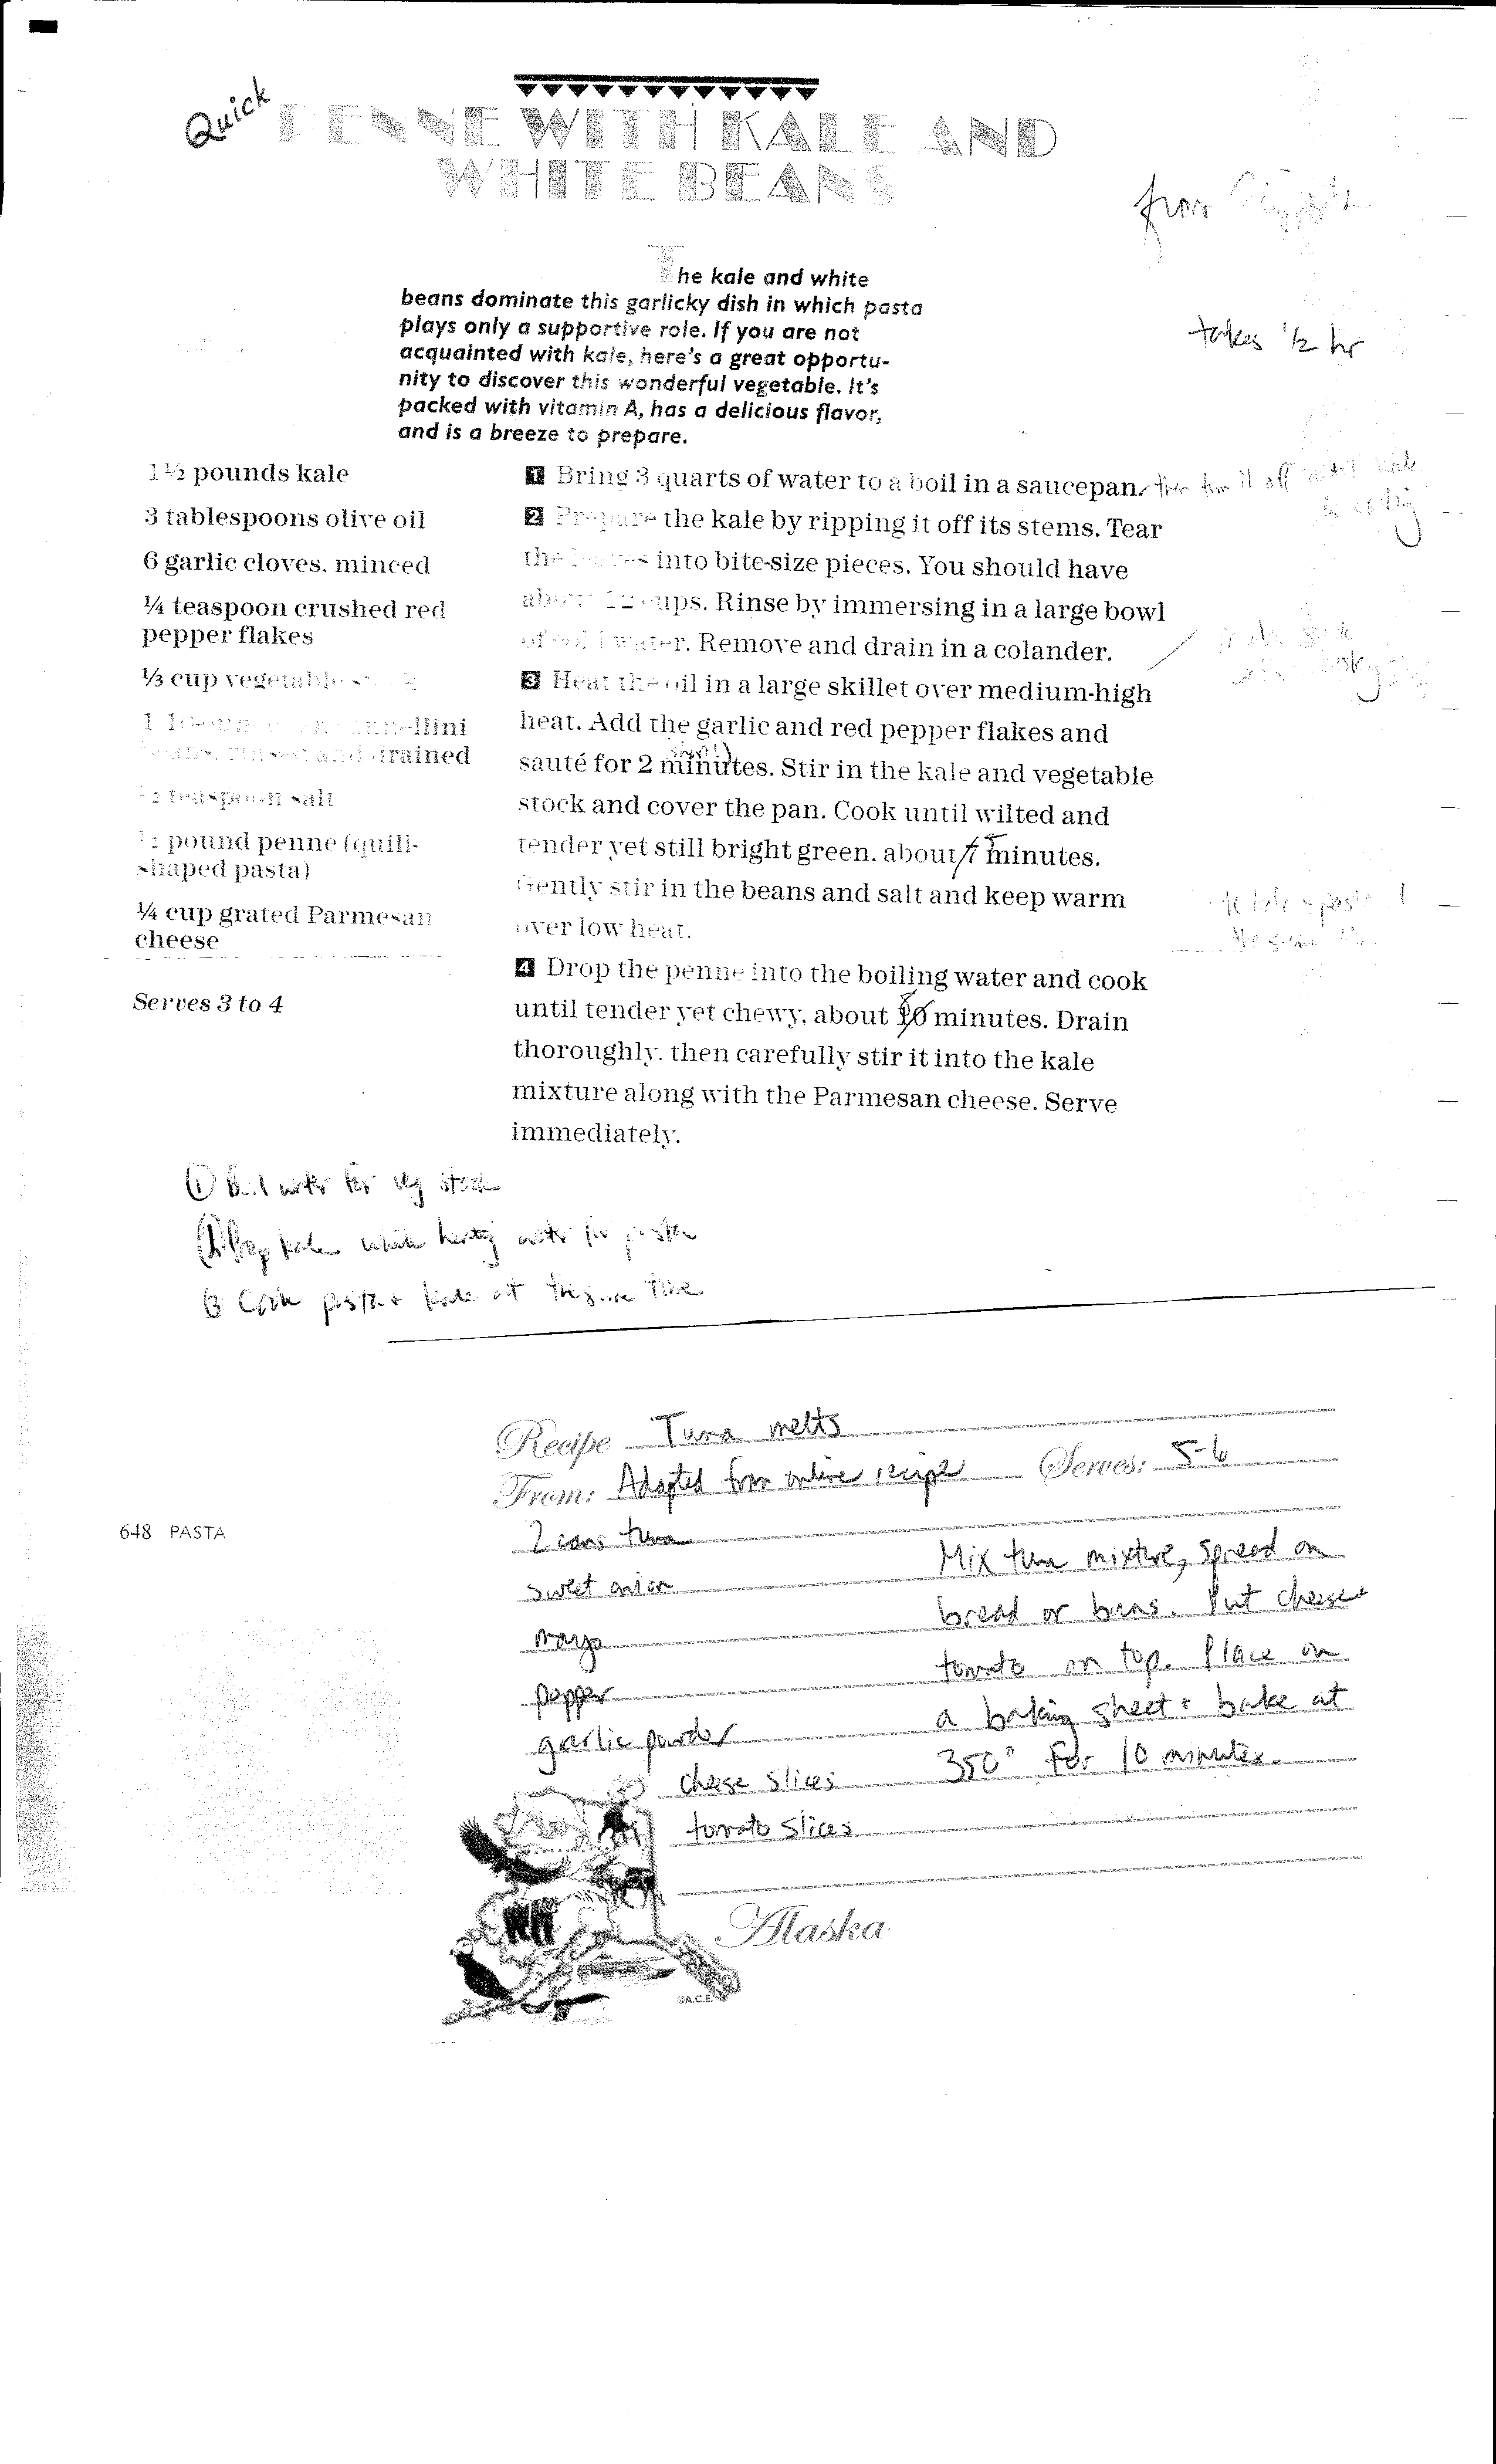 Quick
PENNE WITH KALE AND
WHITE BEANS
from
takes 1/2 hr
The kale and white
beans dominate this garlicky dish in which pasta
plays only a supportive role. If you are not
acquainted with kale, here's a great opportu-
nity to discover this wonderful vegetable. It's
packed with vitamin A, has a delicious flavor,
and is a breeze to prepare.
1½ pounds kale
3 tablespoons olive oil
6 garlic cloves, minced
¼ teaspoon crushed red
pepper flakes
⅓ cup vegetable stock
1 cannellini
beans, rinsed and drained
½ teaspoon salt
½ pound penne (quill-
shaped pasta)
¼ cup grated Parmesan
cheese
Serves 3 to 4
1 Bring 3 quarts of water to a boil in a saucepan.
2 Prepare the kale by ripping it off its stems. Tear
the leaves into bite-size pieces. You should have
about 12 cups. Rinse by immersing in a large bowl
of cold water. Remove and drain in a colander.
3 Heat the oil in a large skillet over medium-high
heat. Add the garlic and red pepper flakes and
sauté for 2 minutes. Stir in the kale and vegetable
stock and cover the pan. Cook until wilted and
tender yet still bright green, about 7 minutes.
Gently stir in the beans and salt and keep warm
over low heat.
4 Drop the penne into the boiling water and cook
until tender yet chewy, about 10 minutes. Drain
thoroughly, then carefully stir it into the kale
mixture along with the Parmesan cheese. Serve
immediately.
① Boil water for veg stock
② Prep kale while heating water for pasta
③ Cook pasta + kale at the same time
Recipe Tuna melts
From: Adapted from online recipe Serves: 5-6
2 cans tuna
sweet onion
mayo
pepper
garlic powder
cheese slices
tomato slices
Mix tuna mixture, spread on
bread or buns. Put cheese +
tomato on top. Place on
a baking sheet + bake at
350° for 10 minutes.
Alaska
©A.C.E.
648 PASTA